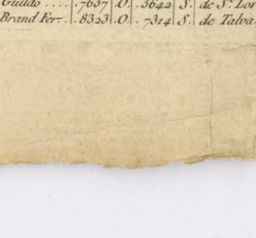 Guildo .... .7637 .O. .3642 S. de St. Lor
Brand Fer. .8323 .O. .7314 S. de Talva